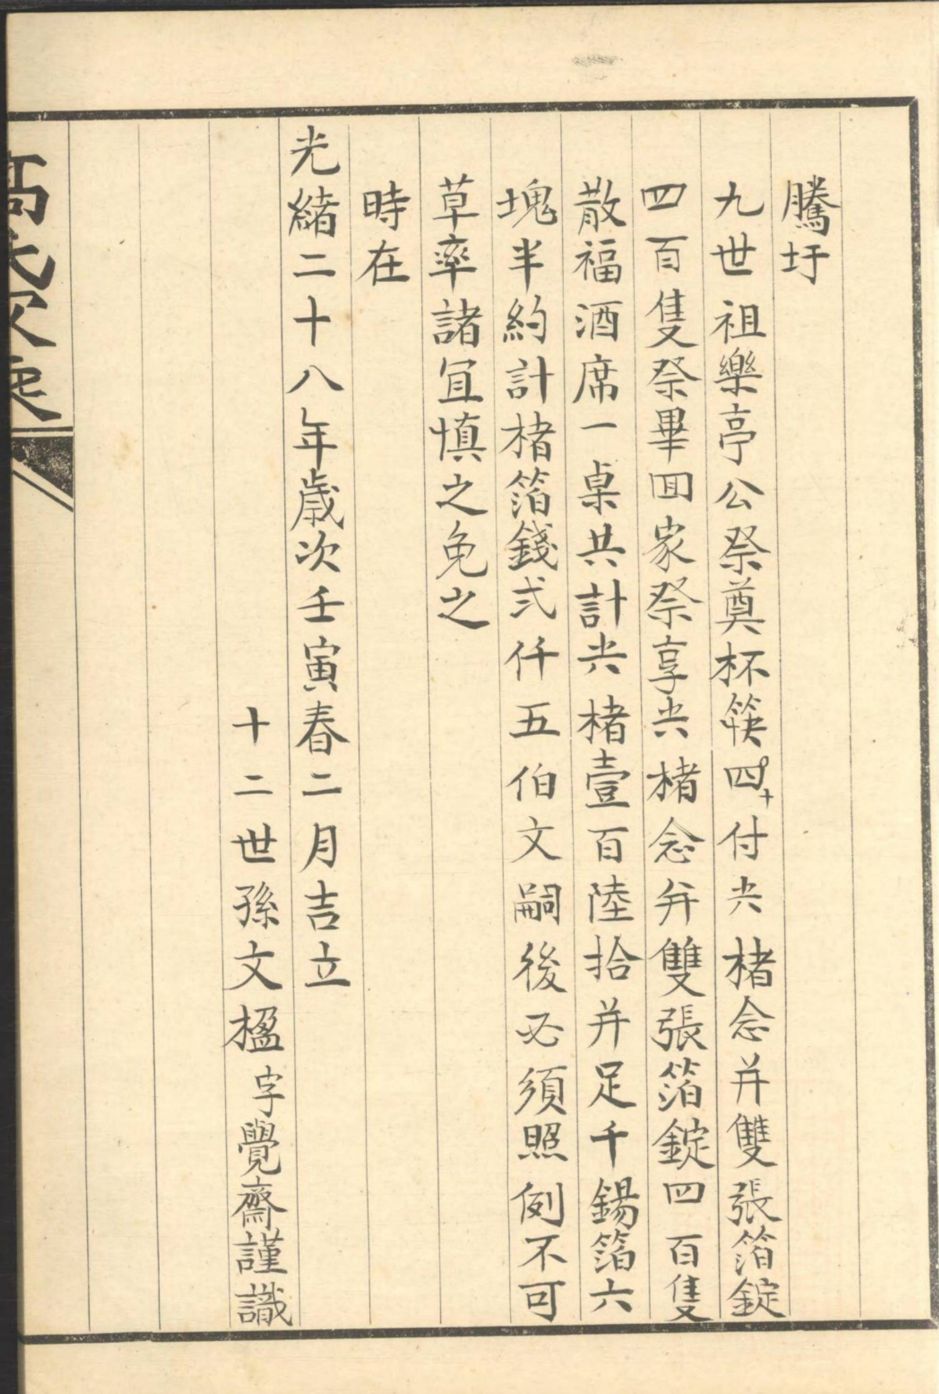 騰圩
九世祖樂亭公祭奠杯筷四十付大楮念并雙張箔錠
四百隻祭畢囬家祭享大楮念并雙張箔錠四百隻
散福酒席一桌共計大楮壹百陸拾并足千錫箔六
塊半約計楮箔錢弍仟五伯文嗣後必須照例不可
草率諸宜慎之免之
時在
光緒二十八年歲次壬寅春二月吉立
十二世孫文楹字覺齋謹識
高氏